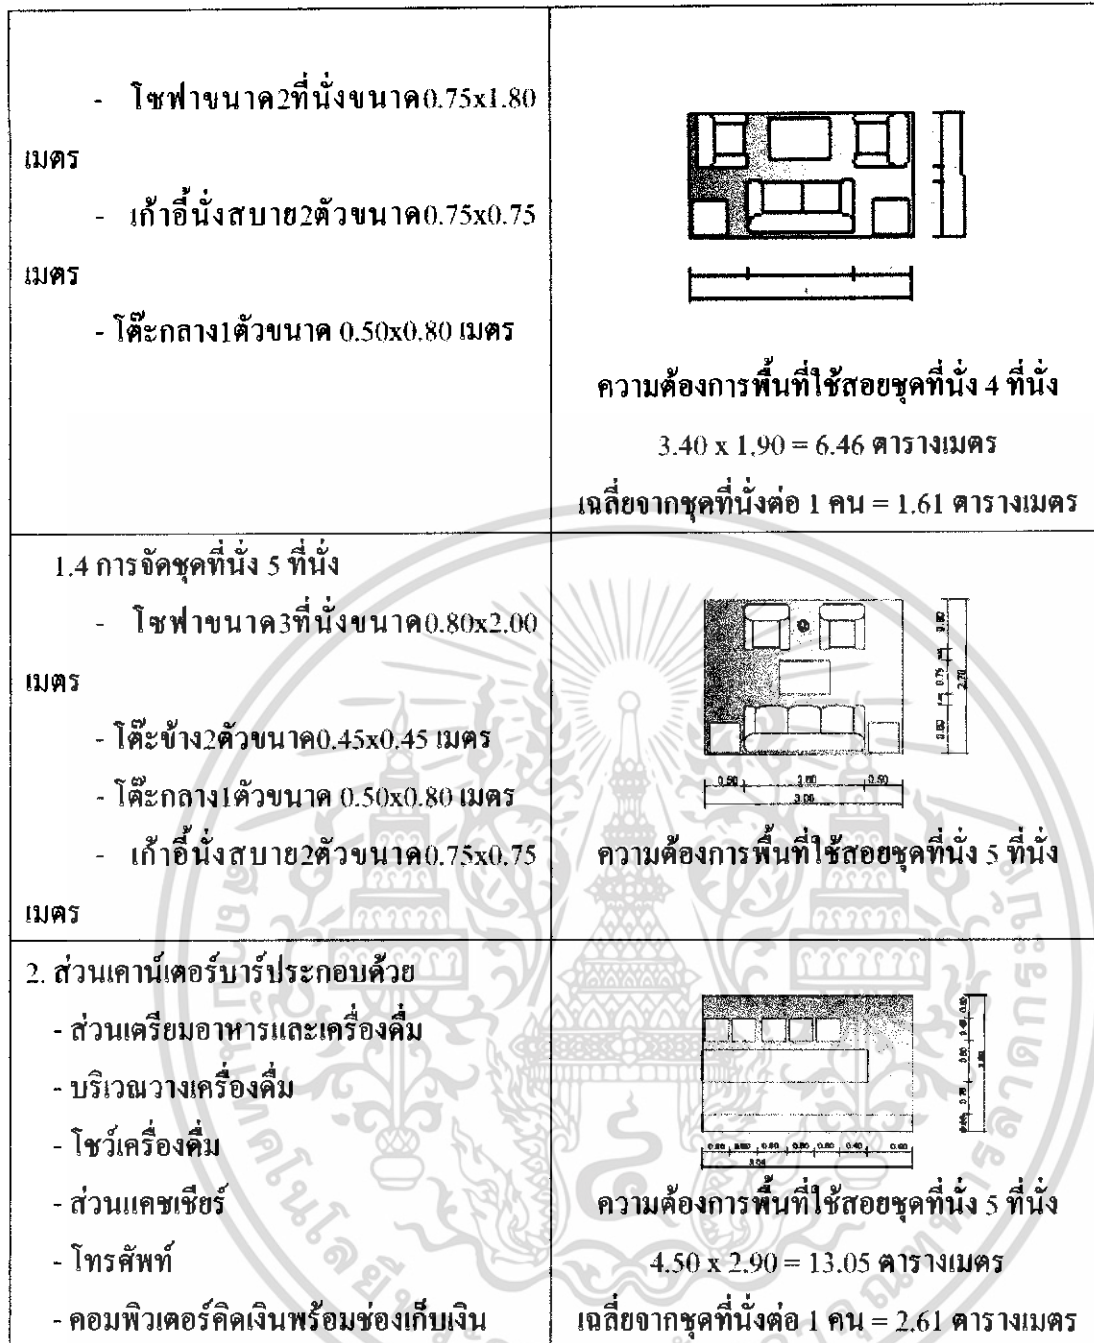 - โซฟาขนาด2ที่นั่งขนาด0.75x1.80
เมตร
- เก้าอี้นั่งสบาย2ตัวขนาด0.75x0.75
เมตร
- โต๊ะกลาง1ตัวขนาด 0.50x0.80 เมตร
ความต้องการพื้นที่ใช้สอยชุดที่นั่ง 4 ที่นั่ง
3.40 x 1.90 = 6.46 ตารางเมตร
เฉลี่ยจากชุดที่นั่งต่อ 1 คน = 1.61 ตารางเมตร
1.4 การจัดชุดที่นั่ง 5 ที่นั่ง
- โซฟาขนาด3ที่นั่งขนาด0.80x2.00
เมตร
- โต๊ะข้าง2ตัวขนาด0.45x0.45 เมตร
- โต๊ะกลาง1ตัวขนาด 0.50x0.80 เมตร
- เก้าอี้นั่งสบาย2ตัวขนาด0.75x0.75
เมตร
ความต้องการพื้นที่ใช้สอยชุดที่นั่ง 5 ที่นั่ง
2. ส่วนเคาน์เตอร์บาร์ประกอบด้วย
- ส่วนเตรียมอาหารและเครื่องดื่ม
- บริเวณวางเครื่องดื่ม
- โชว์เครื่องดื่ม
- ส่วนแคชเชียร์
- โทรศัพท์
- คอมพิวเตอร์คิดเงินพร้อมช่องเก็บเงิน
ความต้องการพื้นที่ใช้สอยชุดที่นั่ง 5 ที่นั่ง
4.50 x 2.90 = 13.05 ตารางเมตร
เฉลี่ยจากชุดที่นั่งต่อ 1 คน = 2.61 ตารางเมตร